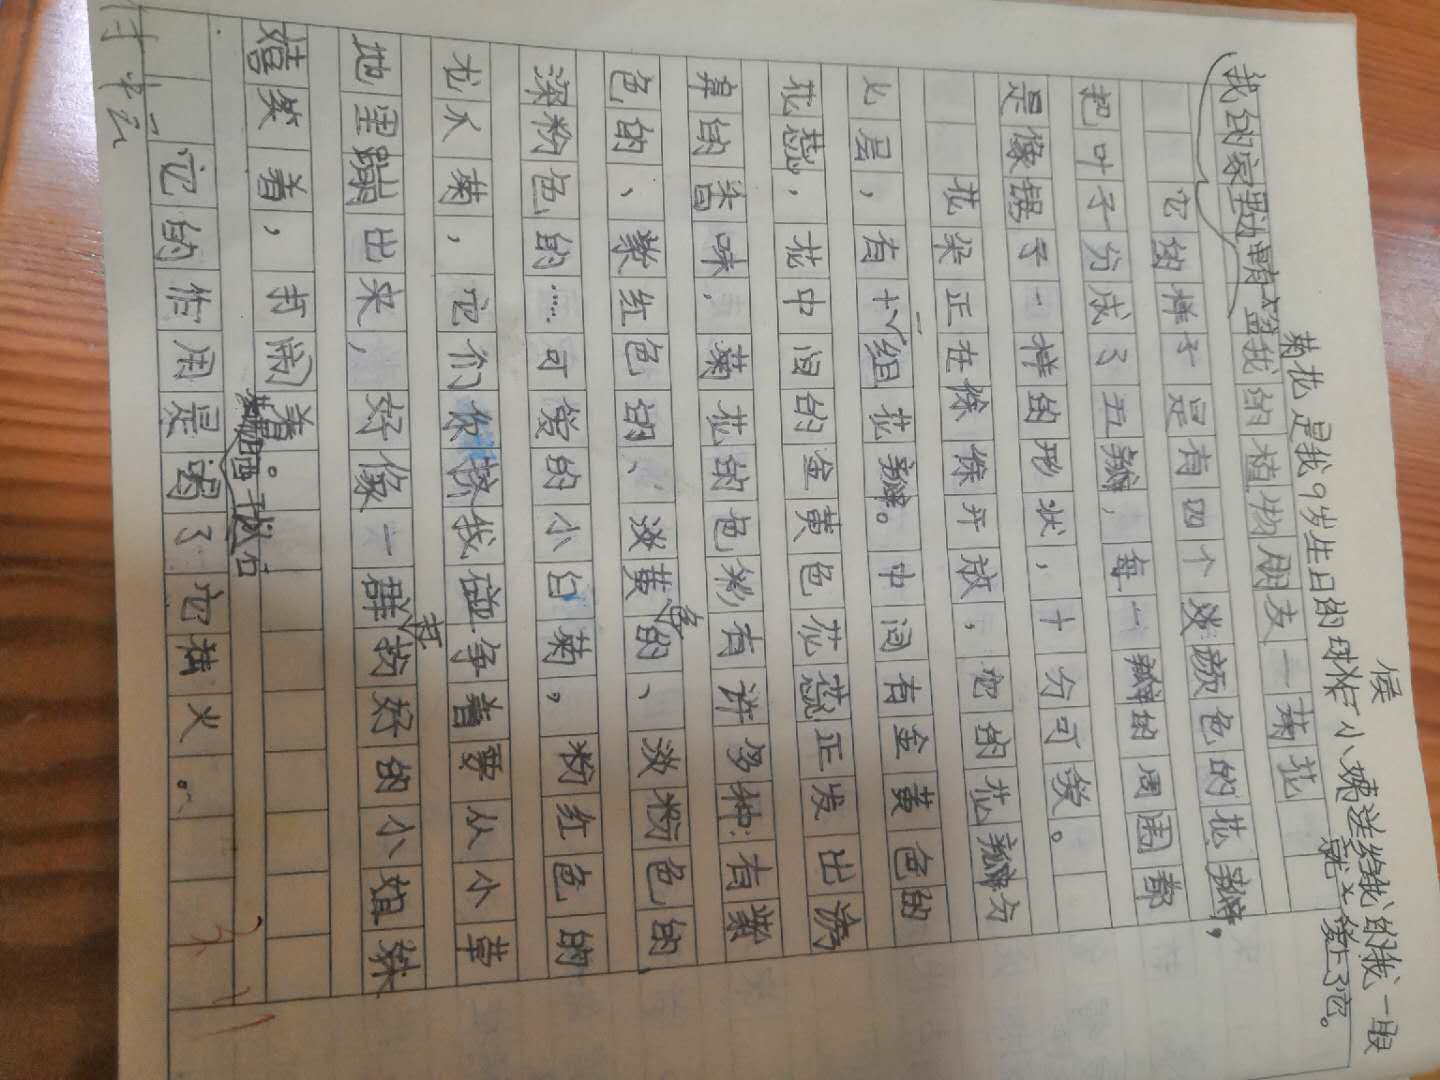 候
菊花是我9岁生日的时候小姨送给我的我一取
就又爱上了它。
我的家里有盆我的植物朋友一菊花
它的样子是有四个淡颜色的花瓣，
把叶子分成了五瓣，每一瓣的周围都
是像锯子一样的形状，十分可爱。
花朵正在徐徐开放，它的花瓣分
匕层，有十组花瓣。中间有金黄色的
花蕊，花中间的金黄色花蕊正发出清
鼻的香味。菊花的色彩有许多种：有紫
色的、紫红色的、淡黄色的、淡粉色的
深粉色的……可爱的小白菊，粉红色的
尤大菊，它们你挤我碰争着要从小草
地里蹦出来，好像一群刚好的小姐妹
嬉笑着，打闹着。
晒干以后
它的作用是喝了它祛火。